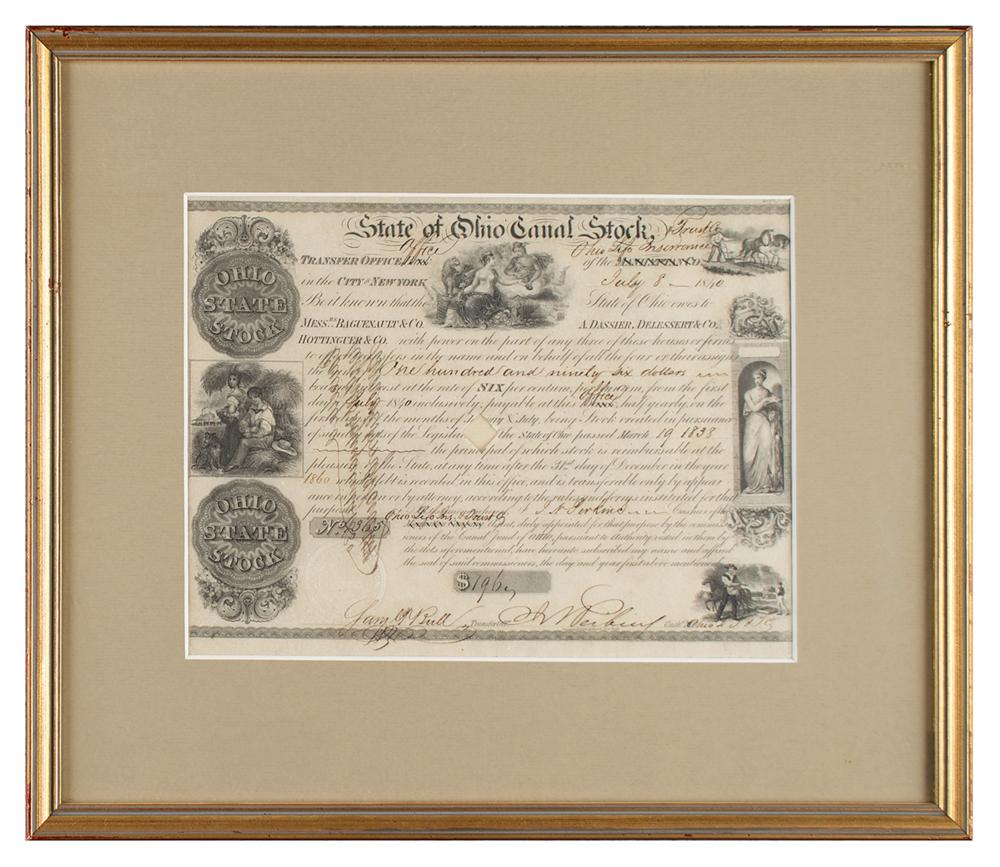 State of Ohio Canal Stock,
Trust Co
Office
Ohio Life Insurance
TRANSFER OFFICE
of the
in the CITY OF NEW YORK
July 8 – 1840
Be it known that the
State of Ohio owes to
MESS.RS BAGUENAULT & CO.
A. DASSIER, DELESSERT & CO.
HOTTINGUER & CO. with power on the part of any three of these houses or firms
to in the name and on behalf of all the four or their assigns
One hundred and ninety six dollars
interest at the rate of SIX per centum, per annum, from the first
day July 1840 inclusively, payable at this Office half yearly, on the
first of the months of January & July, being Stock created in pursuance
of sundry of the Legislature the State of Ohio passed March 19 1838
the principal of which stock is reimbursable at the
pleasure of the State, at any time after the 31st day of December in the year
1860 which debt is recorded in this office, and is transferable only by appear
ance in person or by attorney, according to the rules and forms instituted for that
purpose Cashier of the
Ohio Life Ins. & Trust Co duly appointed for that purpose by the commis
sioners of the Canal fund of Ohio, pursuant to Authority vested in them by
the Acts aforementioned, have hereunto subscribed my name and affixed
the seal of said commissioners, the day and year first above mentioned
No. 365
$196
Transfer
Cash.r
OHIO
STATE
STOCK
OHIO
STATE
STOCK